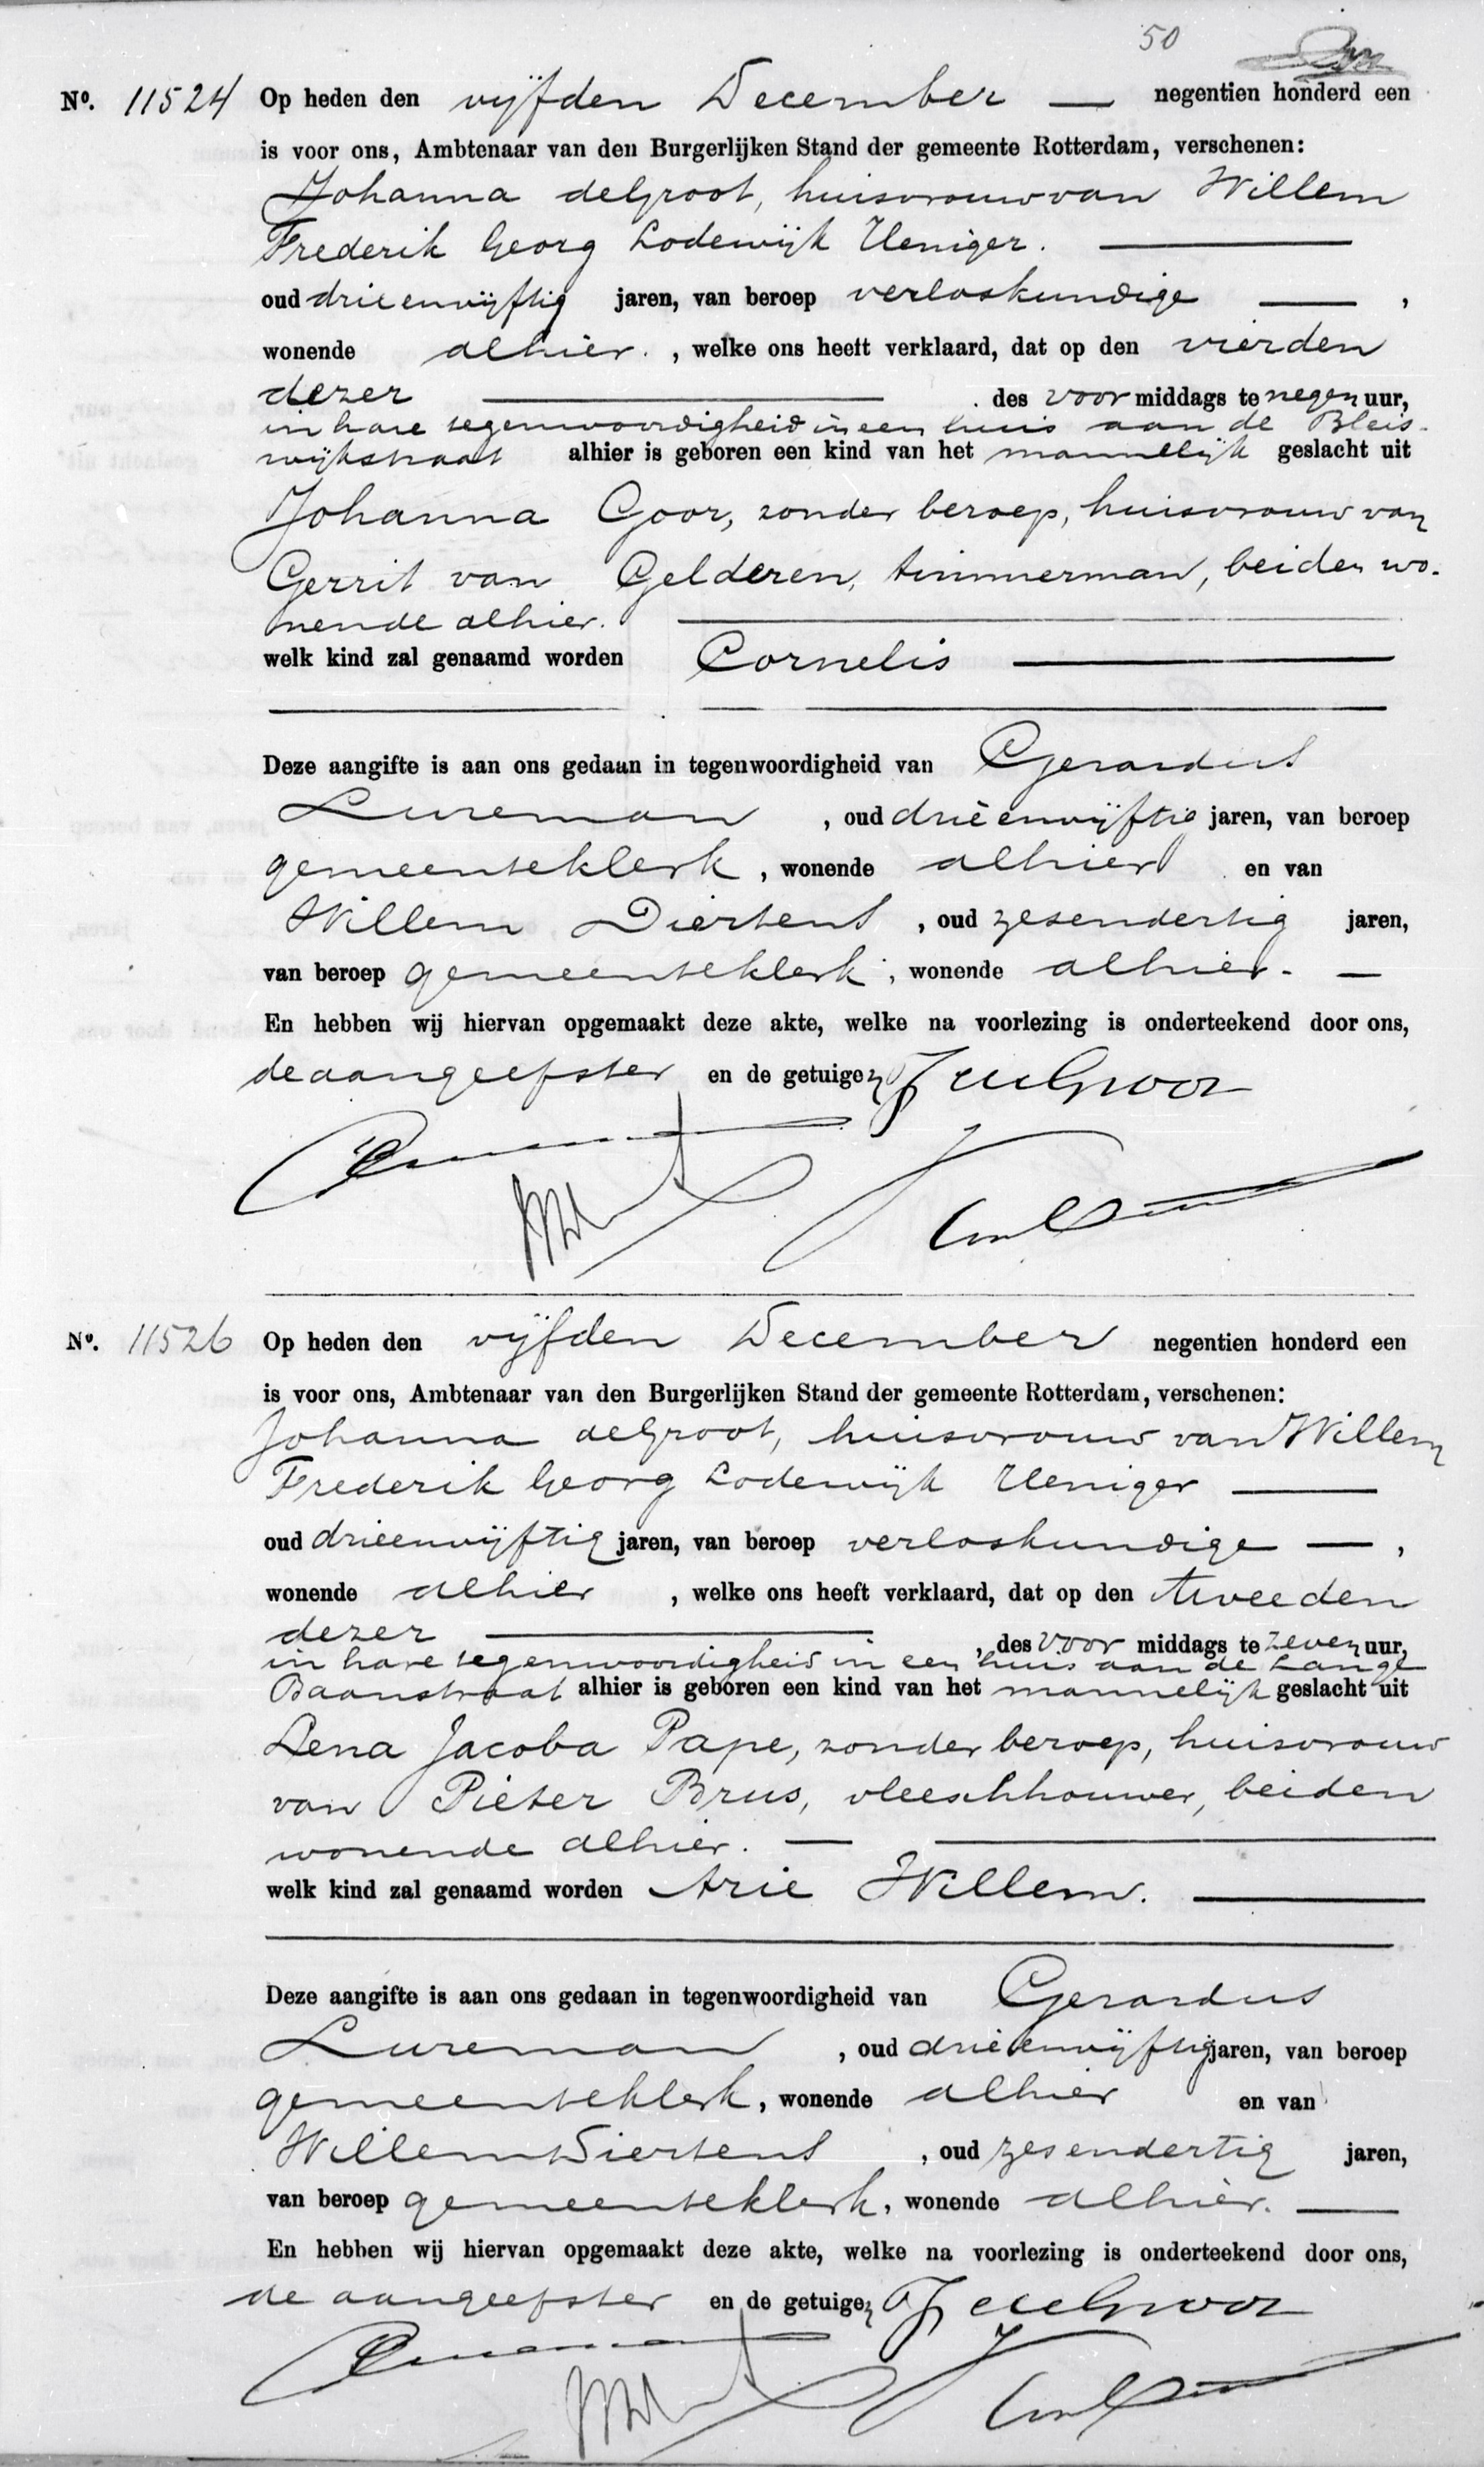 50
Nº. 11524 Op heden den vijfden December negentien honderd een
is voor ons, Ambtenaar van den Burgerlijken Stand der gemeente Rotterdam, verschenen:
Johanna de Groot, huisvrouw van Willem
Frederik Georg Lodewijk Ueniger.
oud drieenvijftig jaren, van beroep verloskundige ,
wonende alhier. , welke ons heeft verklaard, dat op den vierden
dezer . des voor middags te negen uur,
in hare tegenwoordigheid in een huis aan de Bleis-
wijkstraat alhier is geboren een kind van het mannelijk geslacht uit
Johanna Goor, zonder beroep, huisvrouw van
Gerrit van Gelderen, timmerman, beiden wo-
nende alhier.
welk kind zal genaamd worden Cornelis
Deze aangifte is aan ons gedaan in tegenwoordigheid van Gerardus
Lureman , oud drieënvijftig jaren, van beroep
gemeenteklerk , wonende alhier en van
Willem Diertens , oud zesendertig jaren,
van beroep gemeenteklerk , wonende alhier.
En hebben wij hiervan opgemaakt deze akte, welke na voorlezing is onderteekend door ons,
de aangeefster en de getuigen J de Groot
Nº. 11526 Op heden den vijfden December negentien honderd een
is voor ons, Ambtenaar van den Burgerlijken Stand der gemeente Rotterdam, verschenen:
Johanna de Groot, huisvrouw van Willem
Frederik Georg Lodewijk Ueniger
oud drieenvijftig jaren, van beroep verloskundige ,
wonende alhier , welke ons heeft verklaard, dat op den tweeden
dezer , des voor middags te zeven uur,
in hare tegenwoordigheid in een huis aan de Lange
Baanstraat alhier is geboren een kind van het mannelijk geslacht uit
Lena Jacoba Pape, zonder beroep, huisvrouw
van Pieter Brus, vleeschhouwer, beiden
wonende alhier.
welk kind zal genaamd worden Arie Willem.
Deze aangifte is aan ons gedaan in tegenwoordigheid van Gerardus
Lureman , oud drieënvijftig jaren, van beroep
gemeenteklerk , wonende alhier en van
Willem Diertens , oud zesendertig jaren,
van beroep gemeenteklerk , wonende alhier.
En hebben wij hiervan opgemaakt deze akte, welke na voorlezing is onderteekend door ons,
de aangeefster en de getuigen J de Groot